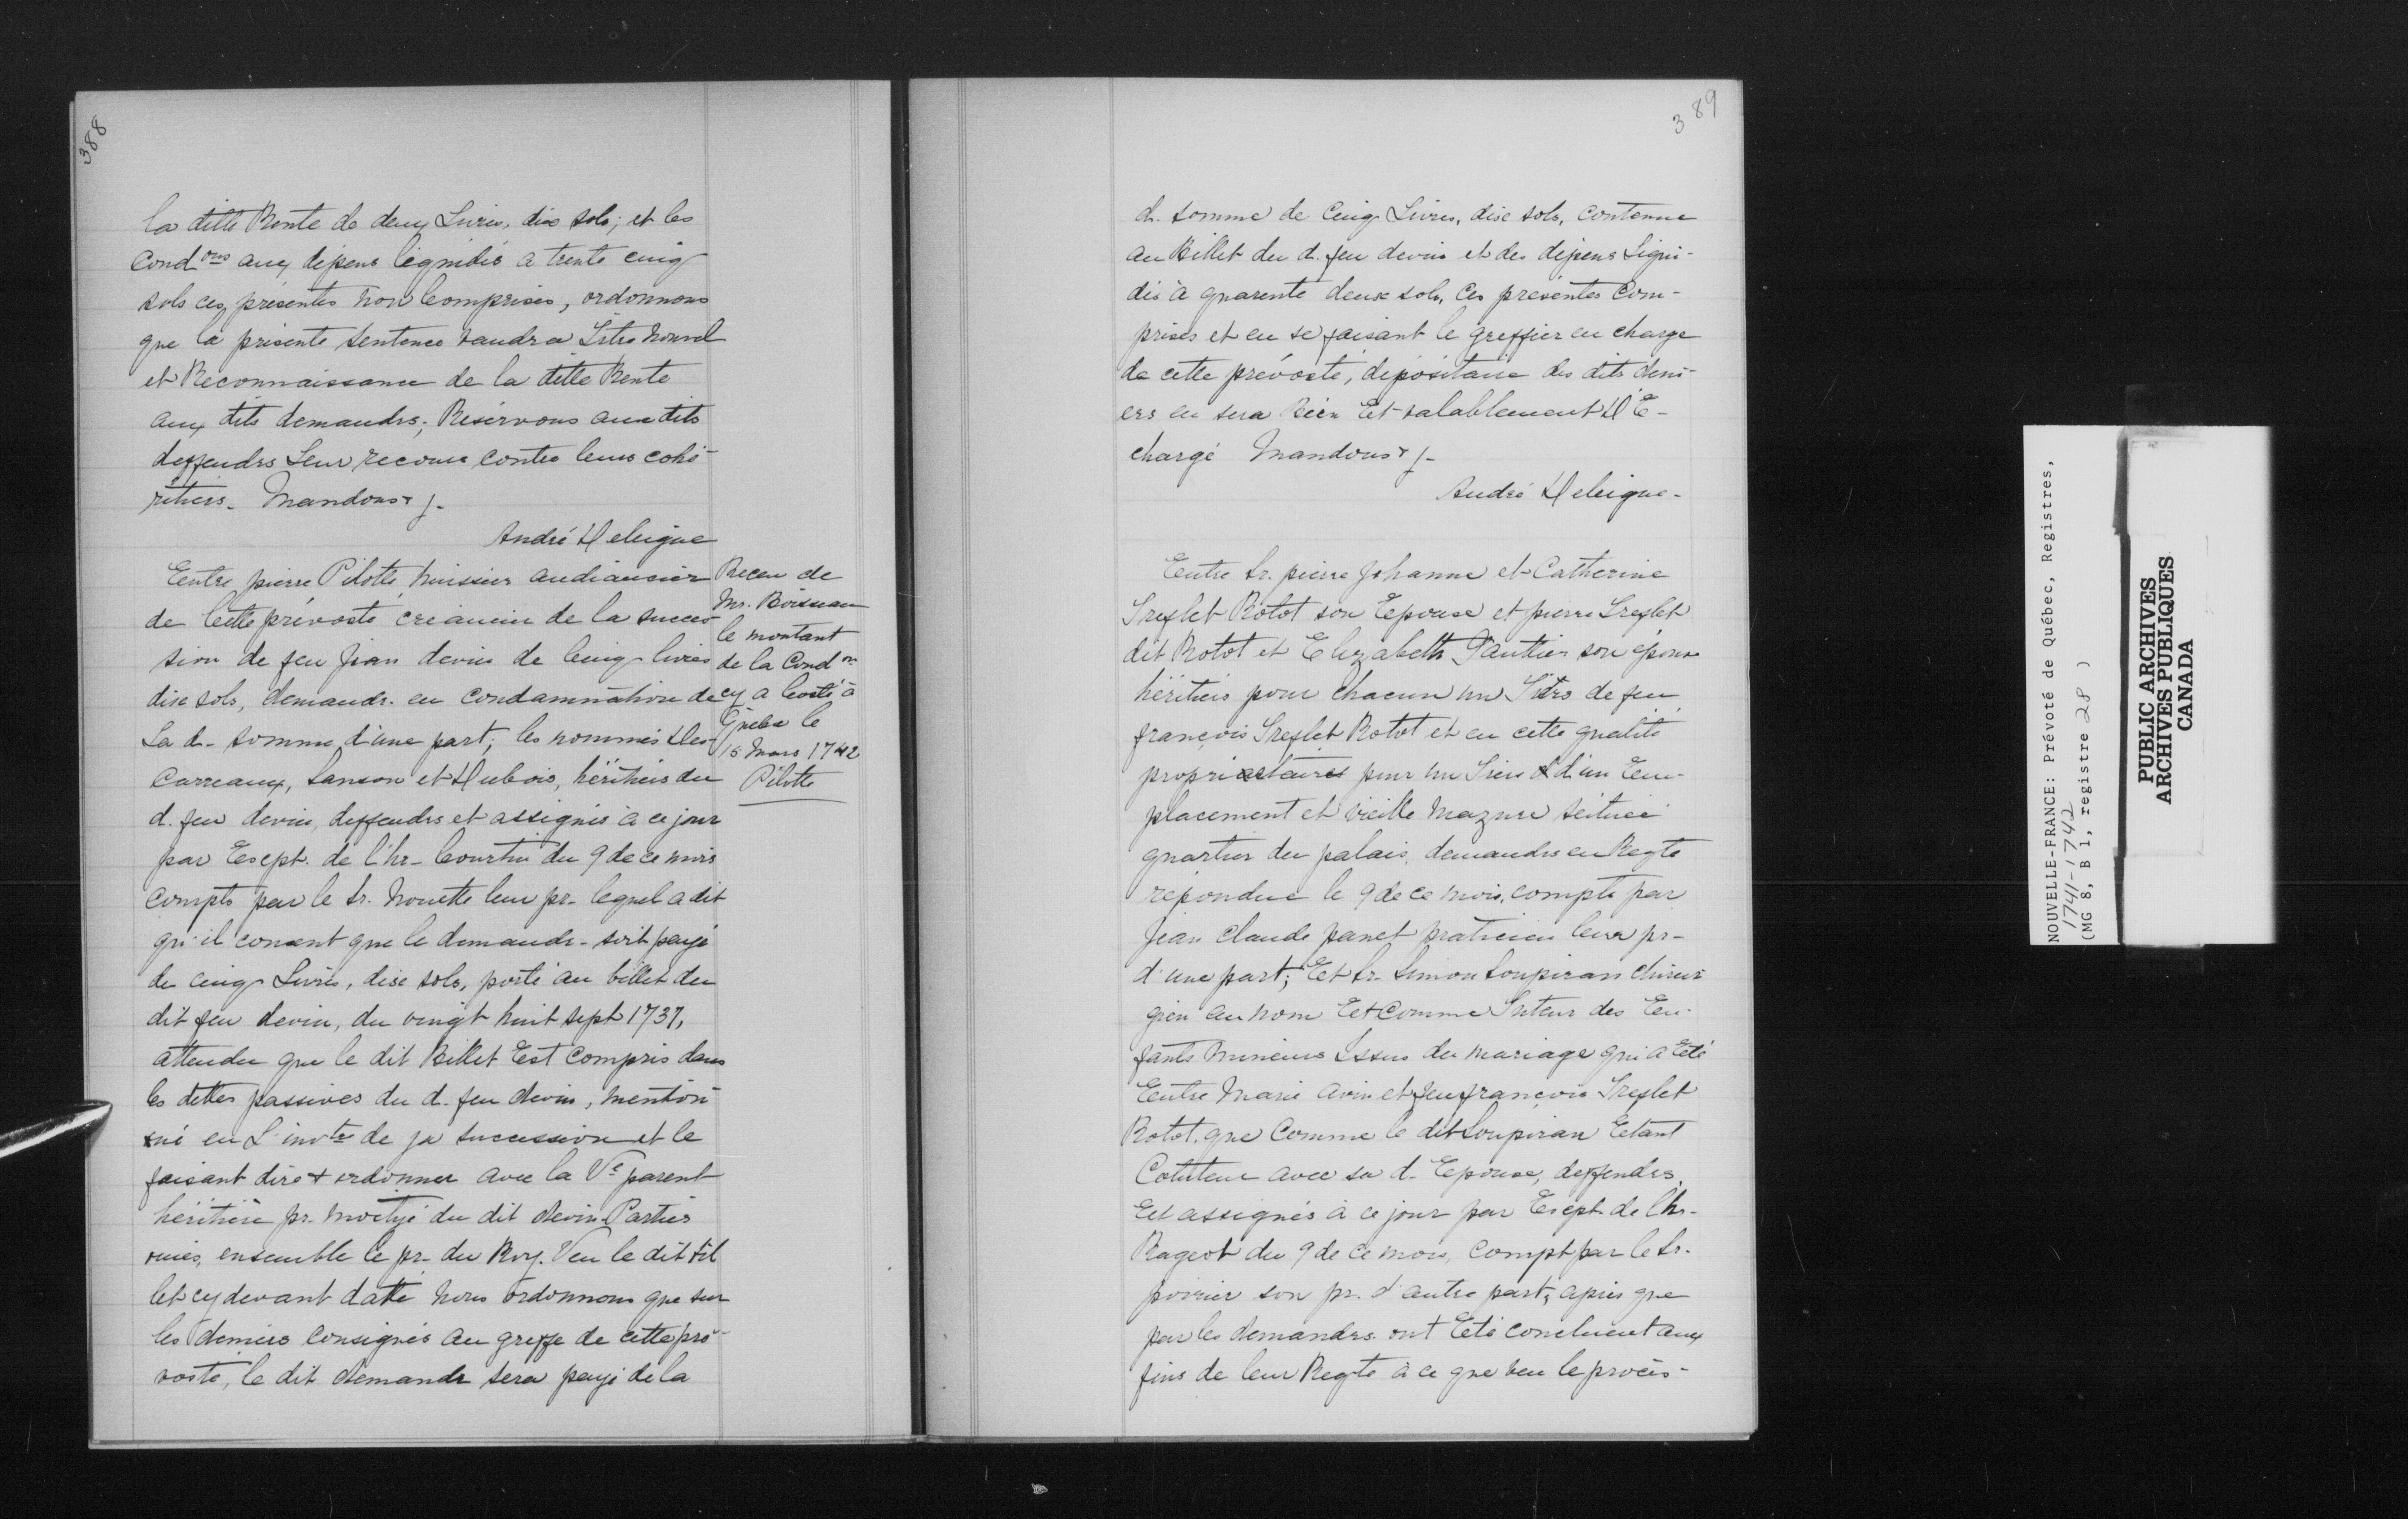 388
la ditte Rente de deux Livres, dix sols; et les
Condons aux dépens liquidés a trente cinq
sols ces présentes non Comprises, ordonnons
que la présente sentence vaudra Titre Nouvel
et Reconnaissance de la ditte Rente
aux dits demandrs; Réservons aux dits
deffendrs Leur recours contre leurs cohé-
ritiers. Mandons &/-
André Deleigne
Entre pierre Pilotte, huissier audiancier
de Cette prévosté créancier de la succes-
sion de feu Jean devin de Cinq livres
dix sols, demandr. en Condamnation de
La d- somme, d'une part; les nommés Des-
Carreaux, Sanson et Dubois, héritiers du
d. feu devin, deffendrs et assignés à ce jour
par Exept. de l'hr- Courtin du 9 de ce mois
Compts par le Sr. Nouette leur pr- lequel a dit
qu'il consent que le demandr- soit payé
de cinq Livres, dix sols, porté au billet du
dit feu devin, du vingt huit sept 1737,
attendu que le dit Billet Est Compris dans
les dettes passives du d. feu devin, mention-
né en L'invtre de sa succession et le
faisant dire & ordonner avec la Ve parent
héritière pr. moityé du dit devin. Parties
ouies, ensemble le pr- du Roy. Veu le dit bil
let cy devant datté Nous ordonnons que sur
les deniers Consignés au greffe de cette pré-
vosté, le dit demandr sera payé de la
Receu de
Mr. Boisseau
le montant
de la Condon
cy a Costé à
Québec le
16 Mars 1742
Pilotte
389
d. somme de Cinq Livres, dix sols, contenue
au Billet du d. feu devin et des dépens Liqui-
dés à quarente deux sols, Ces présentes Com-
prises et en se faisant le greffier en charge
de cette prévosté, dépositaire des dits deni-
ers en sera Bien Et valablement DE-
chargé Mandons &/-
André Deleigne-
Entre Sr. pierre Johanne et Catherine
Treflet Rotot son Epouse et pierre Treflet
dit Rotot et Elizabeth Gautier son épouse
héritiers pour Chacun un Titrs de feu
françois Treflet Rotot et en cette qualité
propriaetaires pour un Tiers d'un Em-
placement et vieille Mazure scituée
quartier du palais, demandrs en Reqte
répondue le 9 de ce mois, compts par
Jean Claude panet praticien leur pr-
d'une part; Et Sr. Simon Soupiran chirur
gien au nom Et Comme Tuteur des En-
fants Mineurs Issus du mariage qui a Eté
Entre Marie avin et feu françois Treflet
Rotot, que Comme le dit Soupiran Etant
Cotuteur avec sa d- Epouse, deffendrs,
Et assignés à ce jour par Exept. de l'hr-
Rageot du 9 de ce mois, Compt par le Sr.
poirier son pr. d'autre part; après que
par les demandrs ont Eté concluent aux
fins de leur Reqte à ce que veu le procès-
NOUVELLE-FRANCE: Prévoté de Québec, Registres,
1741-1742
(MG 8, B 1, registre 28 )
PUBLIC ARCHIVES
ARCHIVES PUBLIQUES
CANADA